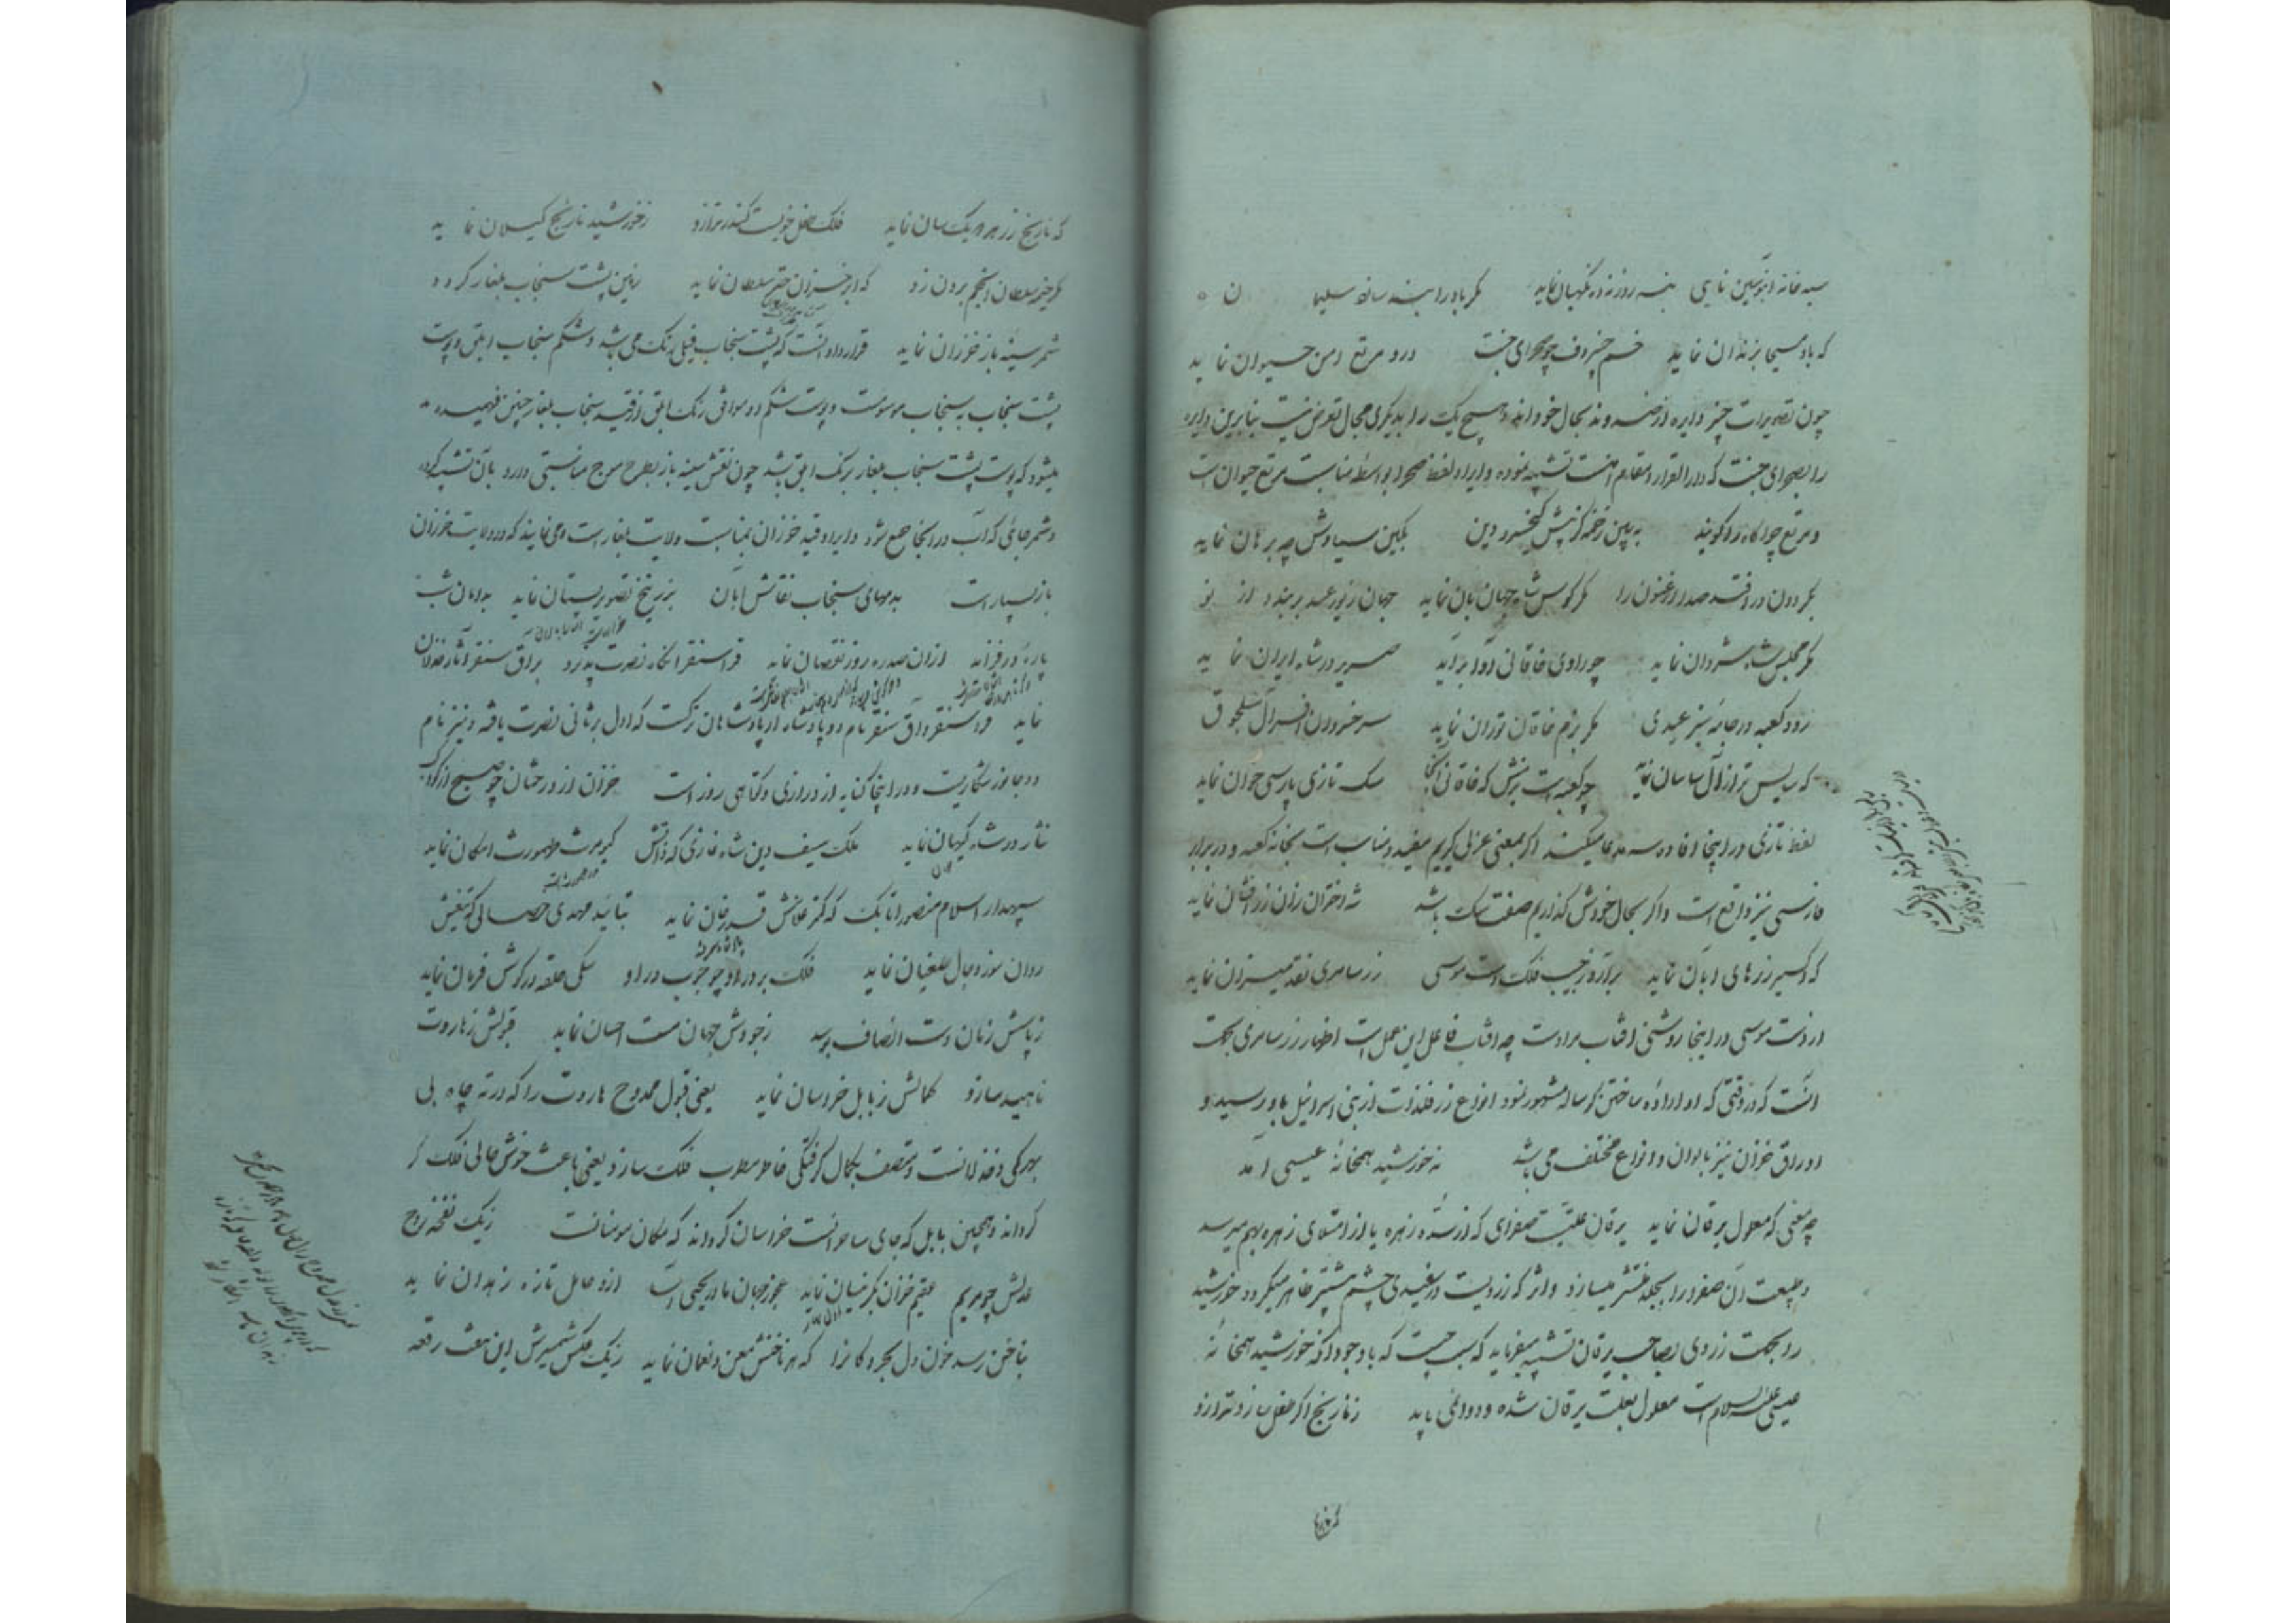 سیه خانه آبنوسین نایی بنه روزنه ده نگهبان نماید مگر باد را بند سازد سلیمان
که باد مسیحا بزندان نماید خم چنبر دف چو صحرای جنت درو مرتع امن حیوان نماید
چون تصویرات چنبر دایره از صنه و ند بحال خود اند و هیچ یک را بدیگری مجال تعرض نیست بنابرین دایره
را بصحرای جنت که دار القرار و مقام امنست تشبیه نموده و ایراد لفظ صحرا بواسطه مناسبت مرتع حیوان است
و مرتع چراگاه را گویند به بین زخمه کز پیش کیخسرو دین بکین سیاوش چه برهان نماید
بگردون در افتد صدا ارغنون را مگر کوس شاه جهان بان نماید جهان زیور عید بربندد از نو
مگر مجلس شاه شروان نماید چو راوی خاقانی آوا برآید صریر در شاه ایران نماید
زود کعبه در جامهٔ سبز عیدی مگر بزم خاقان توران نماید سر خسروان افسر آل سلجوق
که سایس تر از آل ساسان نماید چو کعبه است بزمش که خاقانی آنجا سگ تازی پارسی خوان نماید
لفظ تازی در اینجا افاده سه مدعا میکند اگر بمعنی عربی گیریم مفید و مناسب است بخانه کعبه و در برابر
فارسی نیز واقع است و اگر بحال خودش گذاریم صفت سگ باشد شه اختران زان زرافشان نماید
که اکسیر زرهای آبان نماید برآرد ز جیب فلک دست موسی زر سامری نقد میزان نماید
از دست موسی در اینجا روشنی آفتاب مراد است چه آفتاب فاعل این عمل است اظهار زر سامری بجهت
آنست که در وقتی که او اراده ساختن گوساله مشهور نمود انواع زر فلذات از بنی اسرائیل باو رسید و
اوراق خزان نیز بالوان و انواع مختلف می باشد نه خورشید همخانهٔ عیسی آمد
چه معنی که معلول یرقان نماید یرقان علتیست صفرای که از سده زهره یا از امتلای زهره بهم میرسد
و طبیعت آن صفرا را بجلد منتشر میسازد و اثر که زردیست در سفیدی چشم بیشتر ظاهر میگردد خورشید
را بجهت زردی بصاحب یرقان تشبیه میفرماید که سبب چیست که باوجود آنکه خورشید همخانهٔ
عیسی علیه السلام است معلول بعلت یرقان شده و دوائی یابد ز نارنج اگر طفل سازد ترازو
که نارنج
که نارنج زر هر دو یک سان نماید فلک طفل خوییست کاندر ترازو ز خورشید نارنج گیلان نماید
مگر خیمه سلطان انجم برون زد که ابر خزان چتر سلطان نماید زمین پشت سنجاب بلغار گردد
شمر سینه باز خزران نماید قرارداد آنست که پشت سنجاب فیلی رنگ می باشد و شکم سنجاب ابلق و پوست
پشت سنجاب به سنجاب موسومست و پوست شکم او موافق رنگ ابلق از قید سنجاب بلغار چنین فهمیده
میشود که پوست پشت سنجاب بلغار برنگ ابلق باشد چون نقش سینه باز بطرح موج مناسبتی دارد بآن تشبیه کرده
و شمر جائی که آب در آنجا جمع شود و ایراد قید خزران بمناسبت ولایت بلغار است و می نمایند که در ولایت خزران
باز بسیار است به موهای سنجاب نقاش آبان بزرنیخ تصویر بستان نماید بدامان شب
پاره ور فزاید ازان صدره روز نقصان نماید قراسنقر آنگه نصرت پذیرد براق سنقر آثار خذلان
نماید قراسنقر و آق سنقر نام دو پادشاه از پادشاهان ترکست که اول بر ثانی نصرت یافته و نیز نام
دو جانور شکاریست و در اینجا کنایه از درازی و کوتاهی روز است خزان از درختان چو صبح از کواکب
نثار در شاه کیهان نماید ملک سیف دین شاه غازی که ذاتش کیومرث طهمورث امکان نماید
سپهدار اسلام منصور اتابک که کمتر غلامش قدرخان نماید بتائید مهدی خصالی که تیغش
روان سوز دجال طغیان نماید فلک بر در او چو چوب در او یکی حلقه در گوش فرمان نماید
ز پاسش زمان دست انصاف بوسد ز جودش جهان مست احسان نماید قبولش ز هاروت
ناهید سازد کمالش ز بابل خراسان نماید یعنی قبول ممدوح هاروت را که در ته چاه بی
بهرگی و خذلانست و متصف بکمال گرفتگی خاطر مطرب فلک سازد یعنی باعث خوش حالی فلک
گرداند و همچنین بابل که جای ساحرانست خراسان گرداند که مکان مومنانست ز یک نفخه روح
عدلش چو مریم عقیم خزان بکر نیسان نماید عجوز جهان مادر یحیی است ازو حامل تازه زهدان نماید
بناخن رسد خون دل بحر و کانرا که هر ناخنش معن و نعمان نماید ز یک عکس شمشیرش این هفت رقعه